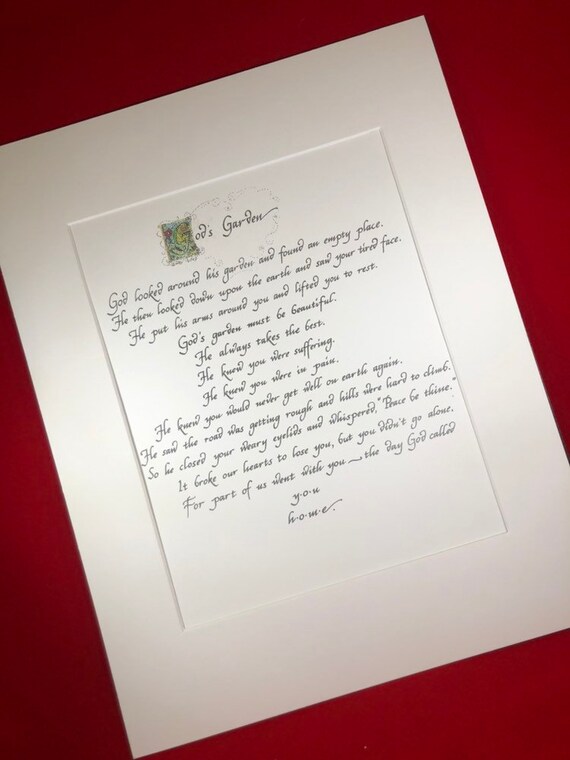 God's Garden
God looked around his garden and found an empty place.
He then looked down upon the earth and saw your tired face.
He put his arms around you and lifted you to rest.
God's garden must be beautiful.
He always takes the best.
He knew you were suffering.
He knew you were in pain.
He knew you would never get well on earth again.
He saw the road was getting rough and hills were hard to climb.
So he closed your weary eyelids and whispered, "Peace be thine."
It broke our hearts to lose you, but you didn't go alone.
For part of us went with you — the day God called
y·o·u
h·o·m·e.